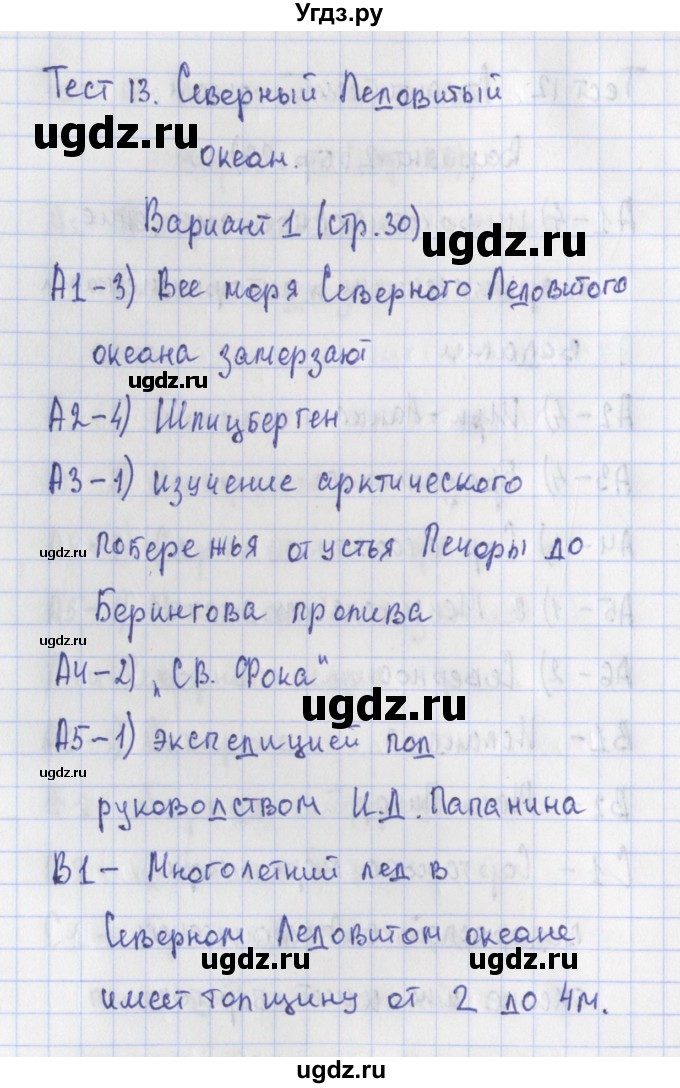 Угдз.ру
Тест 13. Северный Ледовитый
ugdz.ru
океан.
Вариант 1 (стр.30)
ugdz.ru
А1-3) Все моря Северного Ледовитого
океана замерзают
ugdz.ru
А2-4) Шпицберген
А3-1) изучение арктического
ugdz.ru
побережья от устья Печоры до
Берингова пролива
ugdz.ru
А4-2) „Св. Фока"
ugdz.ru
А5-1) экспедицией под
ugdz.ru
руководством И.Д. Папанина
В1- Многолетний лед в
Северном Ледовитом океане
ugdz.ru ugdz.ru
имеет толщину от 2 до 4м.
ugdz.ru